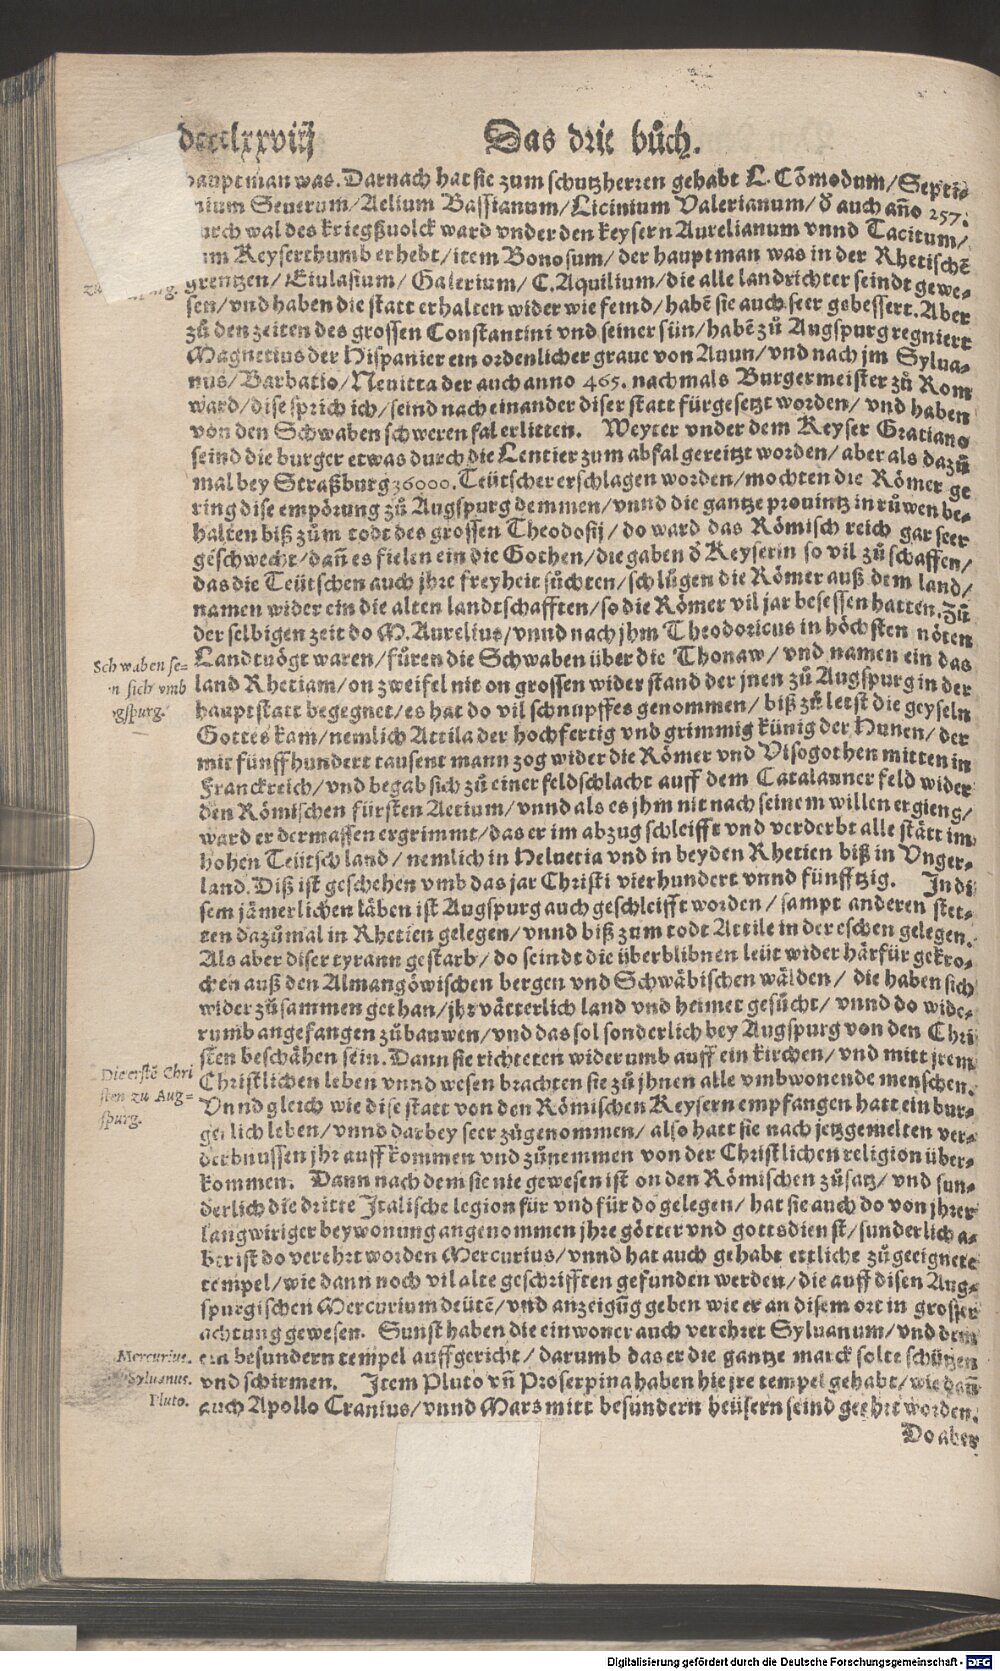 Das drit bůch.
hauptman was. Darnach hat sie zum schutzherren gehabt L. Cõmodum/ Septi⸗
Seuerum/ Aelium Bassianum/ Licinium Valerianum/ đ auch año 257.
wal des kriegßuolck ward vnder den keysern Aurelianum vnnd Tacitum/
Keyserthumb erhebt/ item Bonosum/ der hauptman was in der Rhetischẽ
grentzen/ Eiulasium/ Galerium/ C. Aquilium/ die alle landrichter seindt gewe⸗
sen/ vnd haben die statt erhalten wider wie feind/ habẽ sie auch seer gebessert. Aber
zů den zeiten des grossen Constantini vnd seiner sün/ habẽ zů Augspurg regniert
Magnetius der Hispanier ein ordenlicher graue von Auun/ vnd nach jm Sylua⸗
nus/ Barbatio/ Neuitta der auch anno 465. nachmals Burgermeister zů Rom
ward/ dise sprich ich/ seind nach einander diser statt fürgesetzt worden/ vnd haben
von den Schwaben schweren fal erlitten. Weyter vnder dem Keyser Gratiano
seind die burger etwas durch die Lentier zum abfal gereitzt worden/ aber als dazů
mal bey Straßburg 36000. Teütscher erschlagen worden/ mochten die Römer ge
ring dise empörung zů Augspurg demmen/ vnnd die gantze prouintz in růwen be⸗
halten biß zům todt des grossen Theodosij/ do ward das Römisch reich gar seer
geschwecht/ dañ es fielen ein die Gothen/ die gaben đ Keyserin so vil zů schaffen/
das die Teütschen auch jhre freyheit sůchten/ schlůgen die Römer auß dem land/
namen wider ein die alten landtschafften/ so die Römer vil jar besessen hatten. Zů
der selbigen zeit do M. Aurelius/ vnnd nach jhm Theodoricus in höchsten nöten
Landtuögt waren/ fůren die Schwaben über die Thonaw/ vnd namen ein das
land Rhetiam/ on zweifel nit on grossen widerstand der jnen zů Augspurg in der
hauptstatt begegnet/ es hat do vil schnupffes genommen/ biß zů letst die geyseln
Gottes kam/ nemlich Attila der hochfertig vnd grimmig künig der Hunen/ der
mit fünffhundert tausent mann zog wider die Römer vnd Visogothen mitten in
Franckreich/ vnd begab sich zů einer feldschlacht auff dem Catalauner feld wider
den Römischen fürsten Aetium/ vnnd als es jhm nit nach seinem willen ergieng/
ward er dermassen ergrimmt/ das er im abzug schleifft vnd verderbt alle stätt im
hohen Teütschland/ nemlich in Heluetia vnd in beyden Rhetien biß in Vnger⸗
land. Diß ist geschehen vmb das jar Christi vierhundert vnnd fünfftzig. In di
sem jämerlichen läben ist Augspurg auch geschleifft worden/ sampt anderen stet⸗
ten dazůmal in Rhetien gelegen/ vnnd biß zum todt Attile in der eschen gelegen.
Als aber diser tyrann gestarb/ do seindt die überblibnen leüt wider härfür gekro⸗
chen auß den Almangöwischen bergen vnd Schwäbischen wälden/ die haben sich
wider zůsammen gethan/ jhr vätterlich land vnd heimet gesůcht/ vnnd do wide⸗
rumb angefangen zů bauwen/ vnd das sol sonderlich bey Augspurg von den Chri
sten beschähen sein. Dann sie richteten widerumb auff ein kirchen/ vnd mitt jrem
Christlichen leben vnnd wesen brachten sie zů jhnen alle vmbwonende menschen.
Vnnd gleich wie dise statt von den Römischen Keysern empfangen hatt ein bur⸗
gerlich leben/ vnnd darbey seer zůgenommen/ also hatt sie nach jetzgemelten ver⸗
derbnussen jhr auffkommen vnd zůnemmen von der Christlichen religion über⸗
kommen. Dann nach dem sie nie gewesen ist on den Römischen zůsatz/ vnd sun⸗
derlich die dritte Italische legion für vnd für do gelegen/ hat sie auch do von jhrer
langwiriger beywonung angenommen jhre götter vnd gottsdienst/ sunderlich a⸗
ber ist do verehrt worden Mercurius/ vnnd hat auch gehabt ettliche zůgeeignete
tempel/ wie dann noch vil alte geschrifften gefunden werden/ die auff disen Aug⸗
spurgischen Mercurium deütẽ/ vnd anzeigũg geben wie er an disem ort in grosser
achtung gewesen. Sunst haben die einwoner auch verehret Syluanum/ vnd dem
ein besundern tempel auffgericht/ darumb das er die gantze marck solte schützen
vnd schirmen. Item Pluto vñ Proserpina haben hie jre tempel gehabt/ wie dañ
auch Apollo Cranius/ vnnd Mars mitt besundern heüsern seind geehrt worden.
Do aber
Schwaben se⸗
sich vmb
gspurg.
Die erstẽ Chri
sten zu Aug⸗
spurg.
Mercurius.
Syluanus.
Pluto.
Digitalisierung gefördert durch die Deutsche Forschungsgemeinschaft - DFG